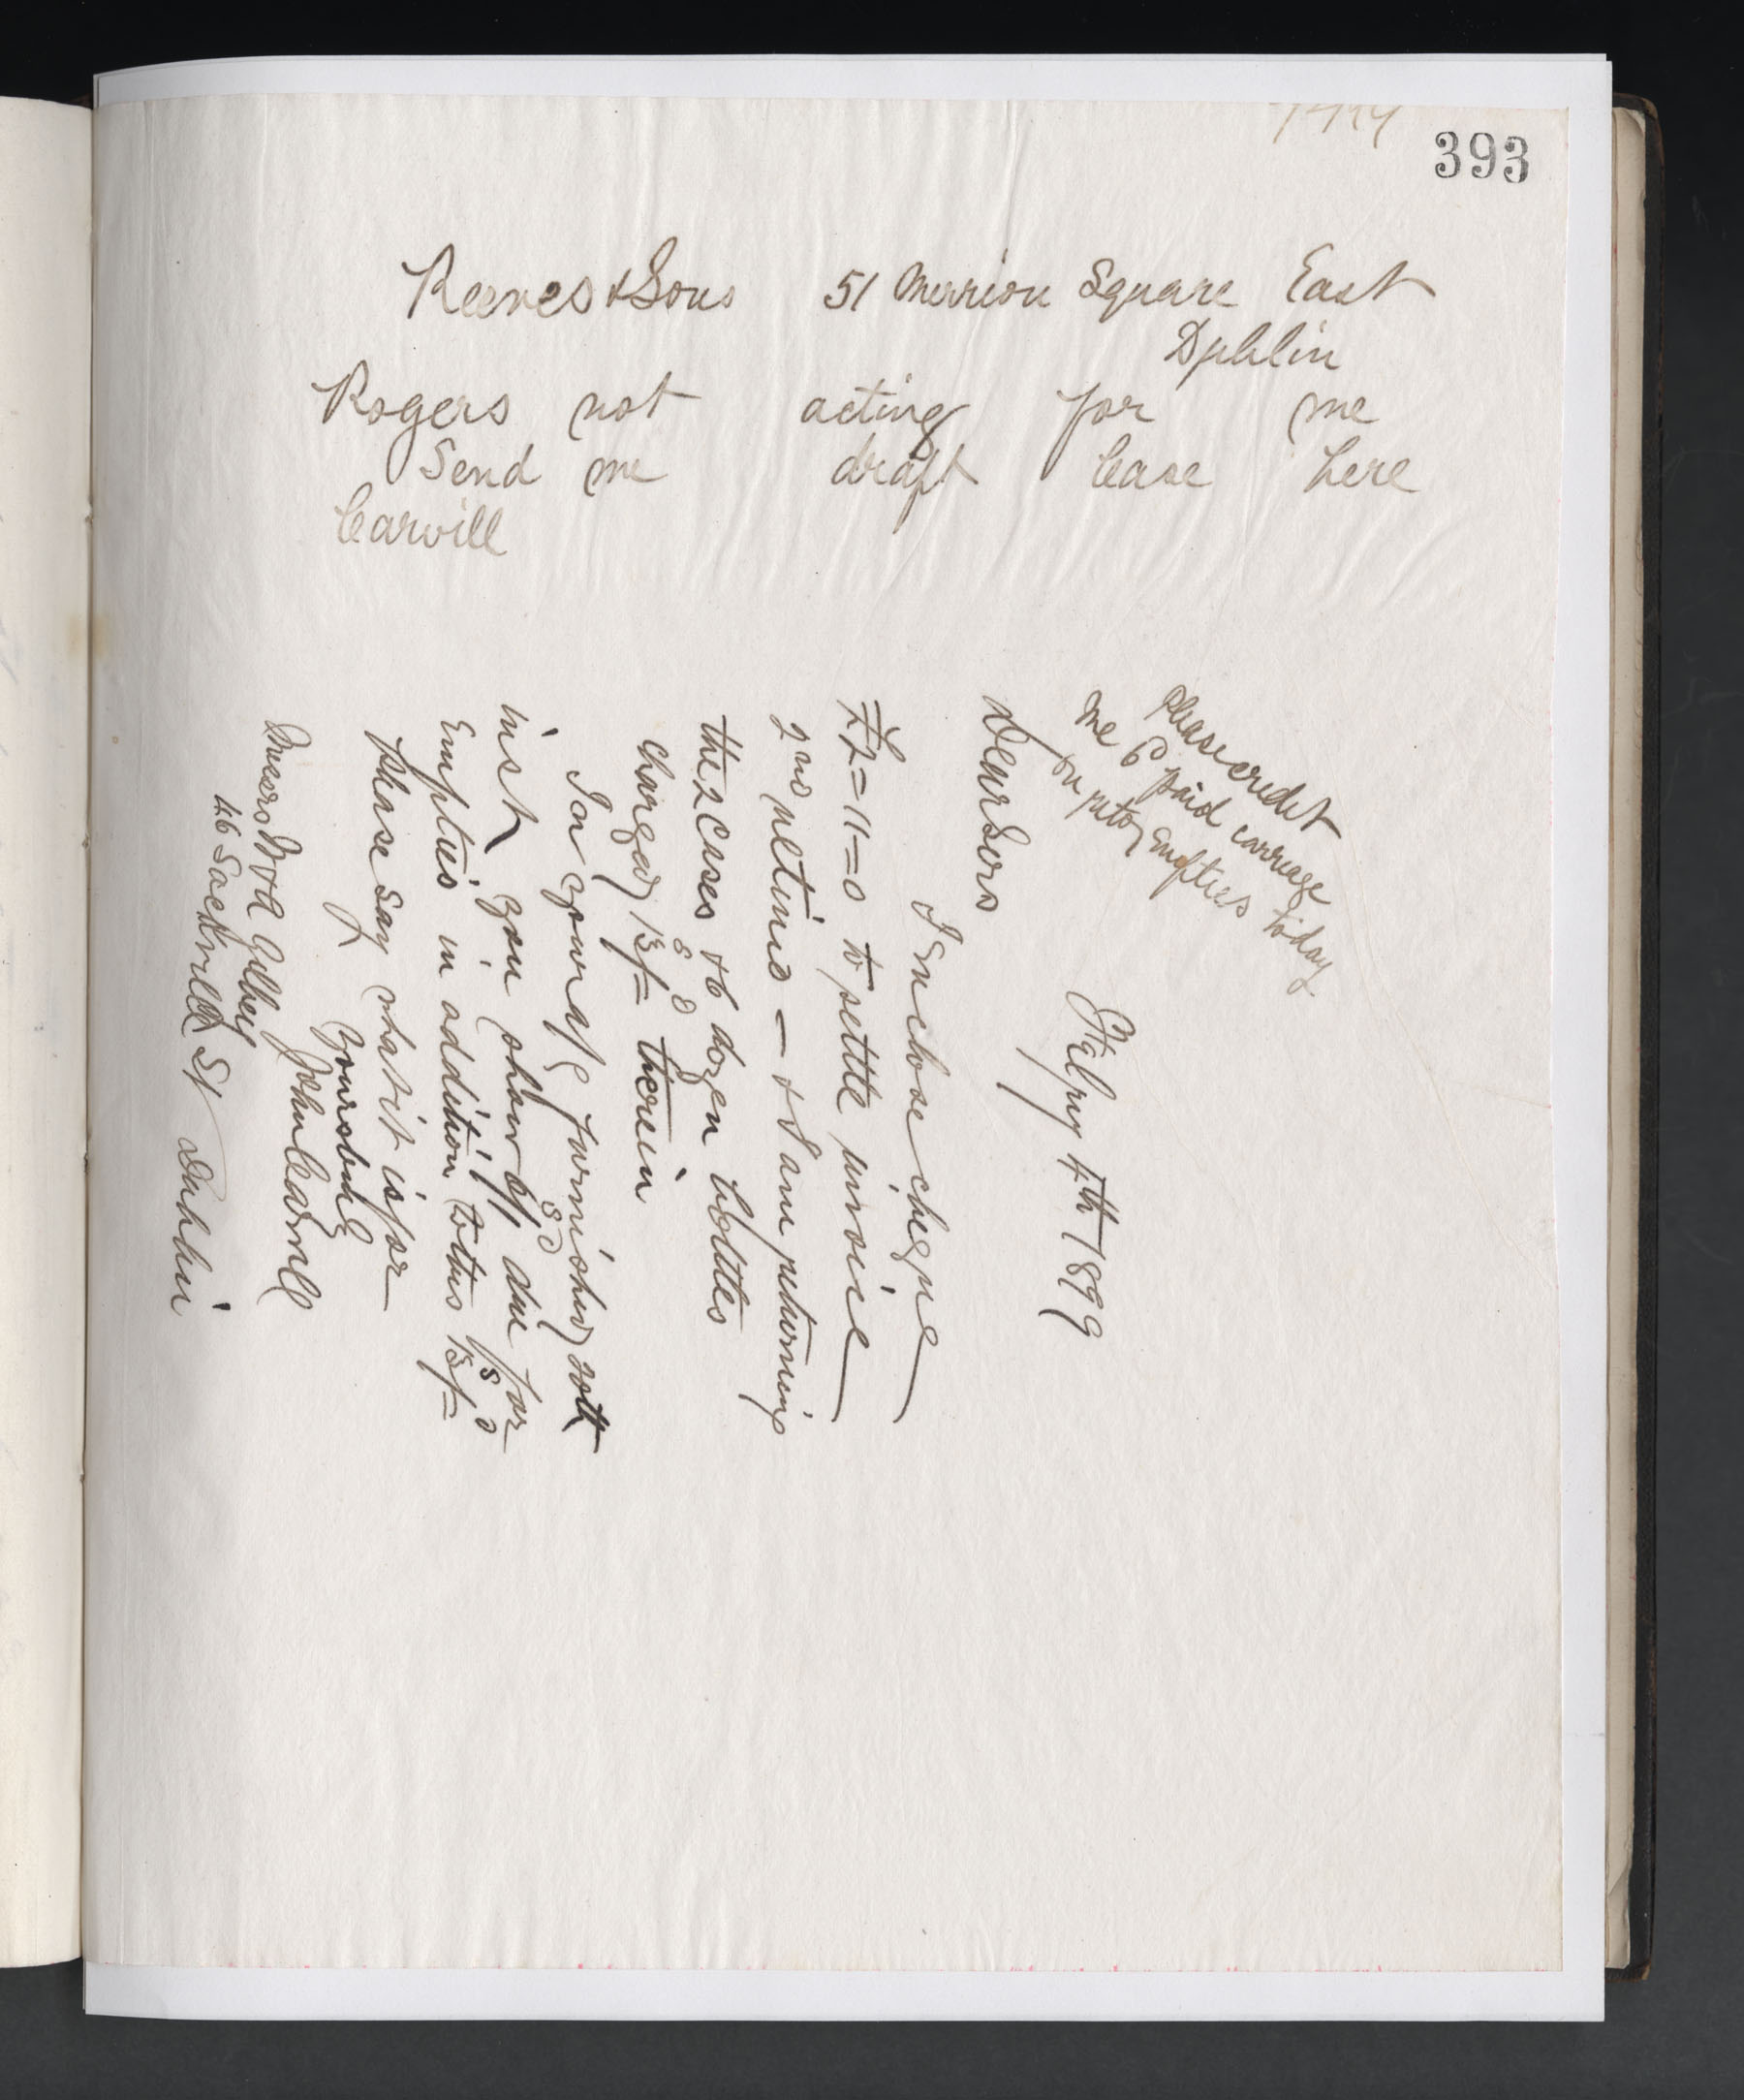 393
Reeves & Sons 51 Merrion Square East
Dublin
Rogers not acting for me
Send me draft lease here
Carvill
Please credit
me 6d paid carriage
on retd Empties today
Falpuy 4th 1899
Dear Sirs
I Enclose cheque
£2=11=0 to settle invoice
2nd ultimo — & I am returning
the 2 Cases & 6 dozen bottles
s d
charged 13/= therein
In your a/c furnished 30th
inst you show 8/ due for
s d
Empties in addition to this 13/=
s d
please say what it is for
Yours truly
John Carvill
Messrs W & A Gilbey
46 Sackville St Dublin